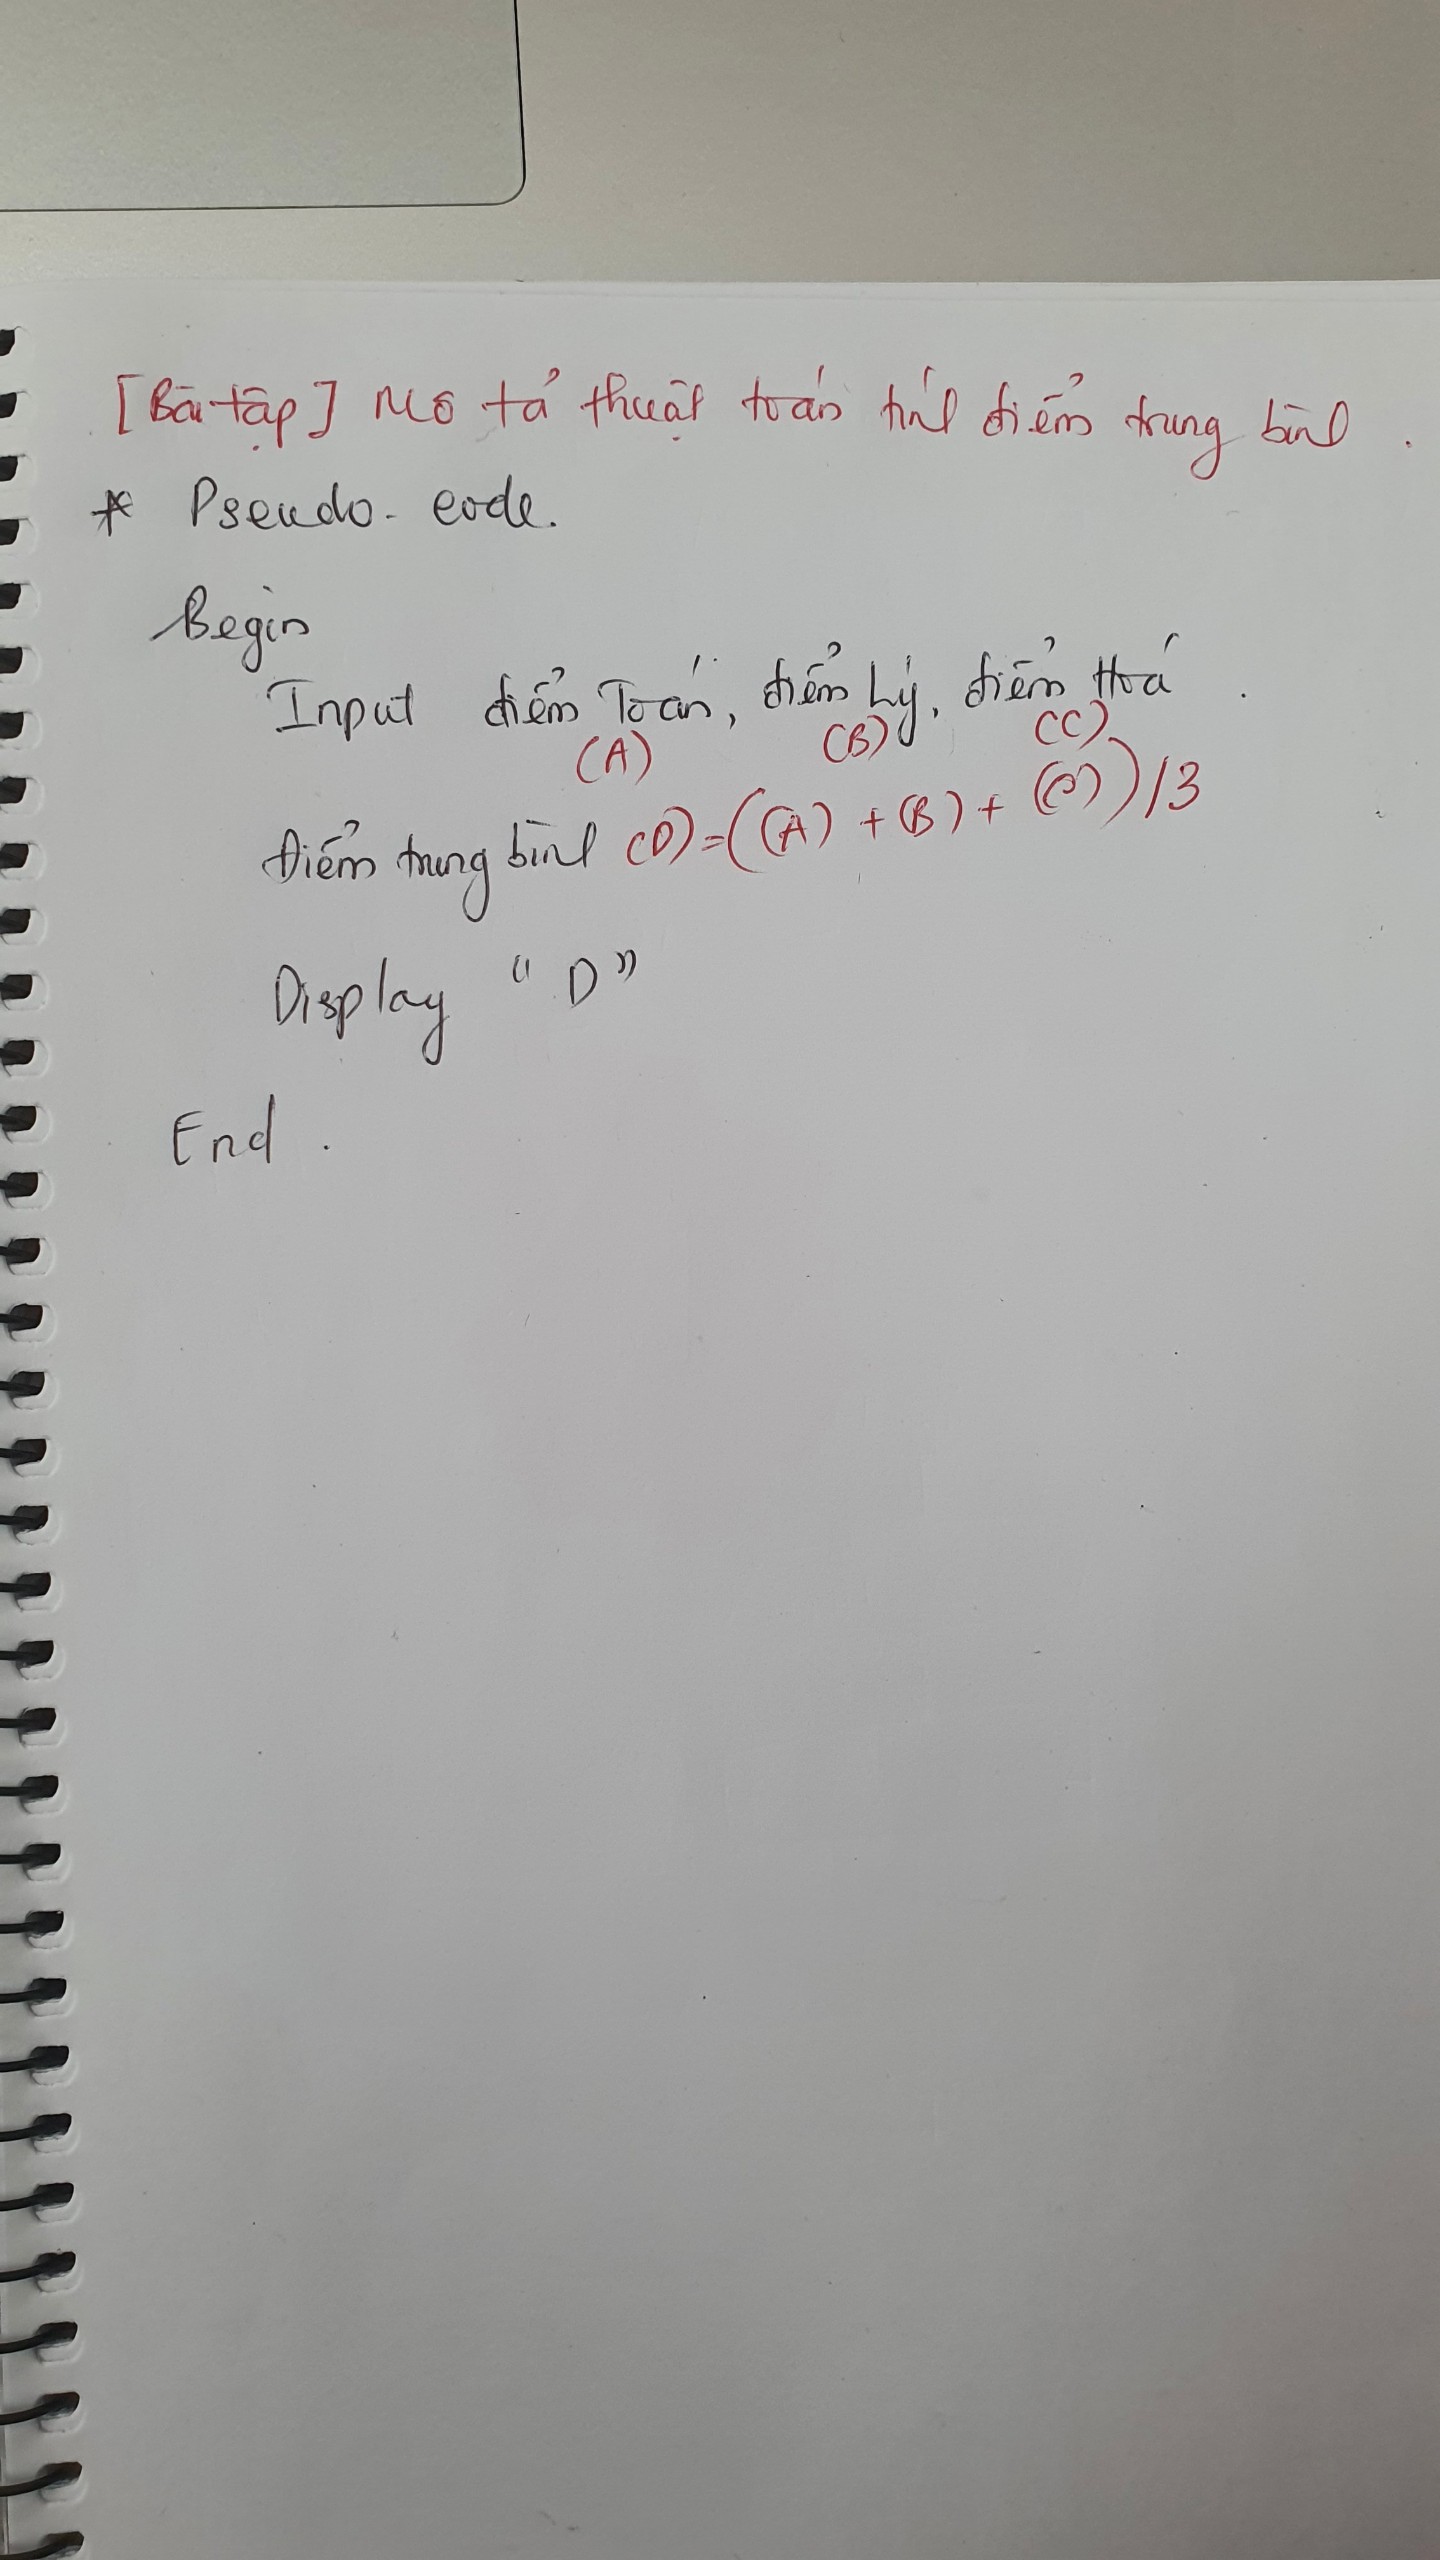 [Bài tập] Mô tả thuật toán tính điểm trung bình.
* Pseudo-code.
Begin
Input điểm Toán, điểm Lý, điểm Hoá.
(A) (B) (C)
Điểm trung bình (D)=((A)+(B)+(C))/3
Display "D"
End.